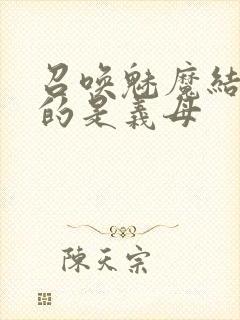 召喚魅魔結
的是義母
陳天宗